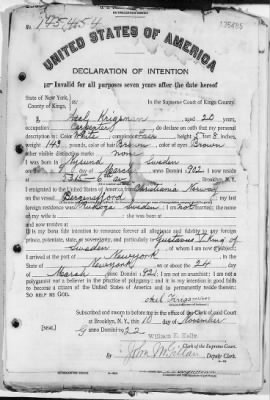 No. 145454
UNITED STATES OF AMERICA
DECLARATION OF INTENTION
Invalid for all purposes seven years after the date hereof
State of New York,
County of Kings,
In the Supreme Court of Kings County.
I, Axel Krigsman, aged 20 years,
occupation Carpenter, do declare on oath that my personal
description is: Color White, complexion Fair, height 5 feet 8 inches,
weight 143 pounds, color of hair Brown, color of eyes Brown
other visible distinctive marks none
I was born in Sweden
on the day of March, anno Domini 1902; I now reside
at Brooklyn, N.Y.
I emigrated to the United States of America from Christiania Norway
on the vessel Bergensfjord; my last
foreign residence was Sweden; I am not married; the name
of my wife is ; she was born at
and now resides at
It is my bona fide intention to renounce forever all allegiance and fidelity to any foreign
prince, potentate, state, or sovereignty, and particularly to Gustavus V King of
Sweden, of whom I am now a subject;
I arrived at the port of Newyork, in the
State of Newyork, on or about the 24 day
of March, anno Domini 1921; I am not an anarchist; I am not a
polygamist nor a believer in the practice of polygamy; and it is my intention in good faith
to become a citizen of the United States of America and to permanently reside therein:
SO HELP ME GOD.
Axel Krigsman
Subscribed and sworn to before me in the office of the Clerk of said Court
at Brooklyn, N. Y., this 10 day of November
[SEAL] anno Domini 1922
William E. Kelly
Clerk of the Court.
By John McGillan, Deputy Clerk.